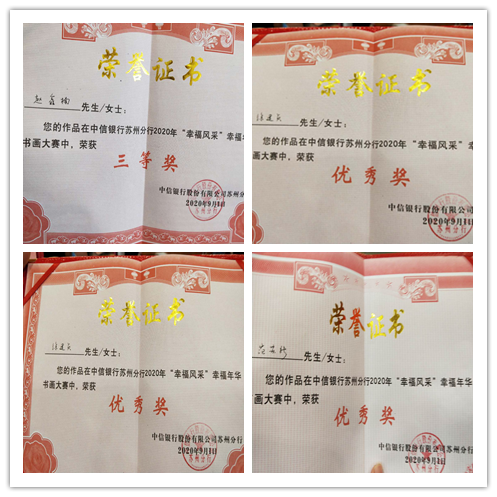 荣誉证书
先生/女士:
您的作品在中信银行苏州分行2020年“幸福风采”幸
书画大赛中,荣获
三等奖
中信银行股份有限公司苏州
2020年9月
荣誉证书
先生/女士:
您的作品在中信银行苏州分行2020年“幸福风采”幸福年
画大赛中,荣获
优秀奖
中信银行股份有限公司苏州分行
2020年9月
荣誉证书
先生/女士:
您的作品在中信银行苏州分行2020年“幸福风采”幸福年华
书画大赛中,荣获
优秀奖
中信银行股份有限公司苏州分行
2020年9月
荣誉证书
先生/女士:
您的作品在中信银行苏州分行2020年“幸福风采”幸福年华
画大赛中,荣获
优秀奖
中信银行股份有限公司苏州分
2020年9月